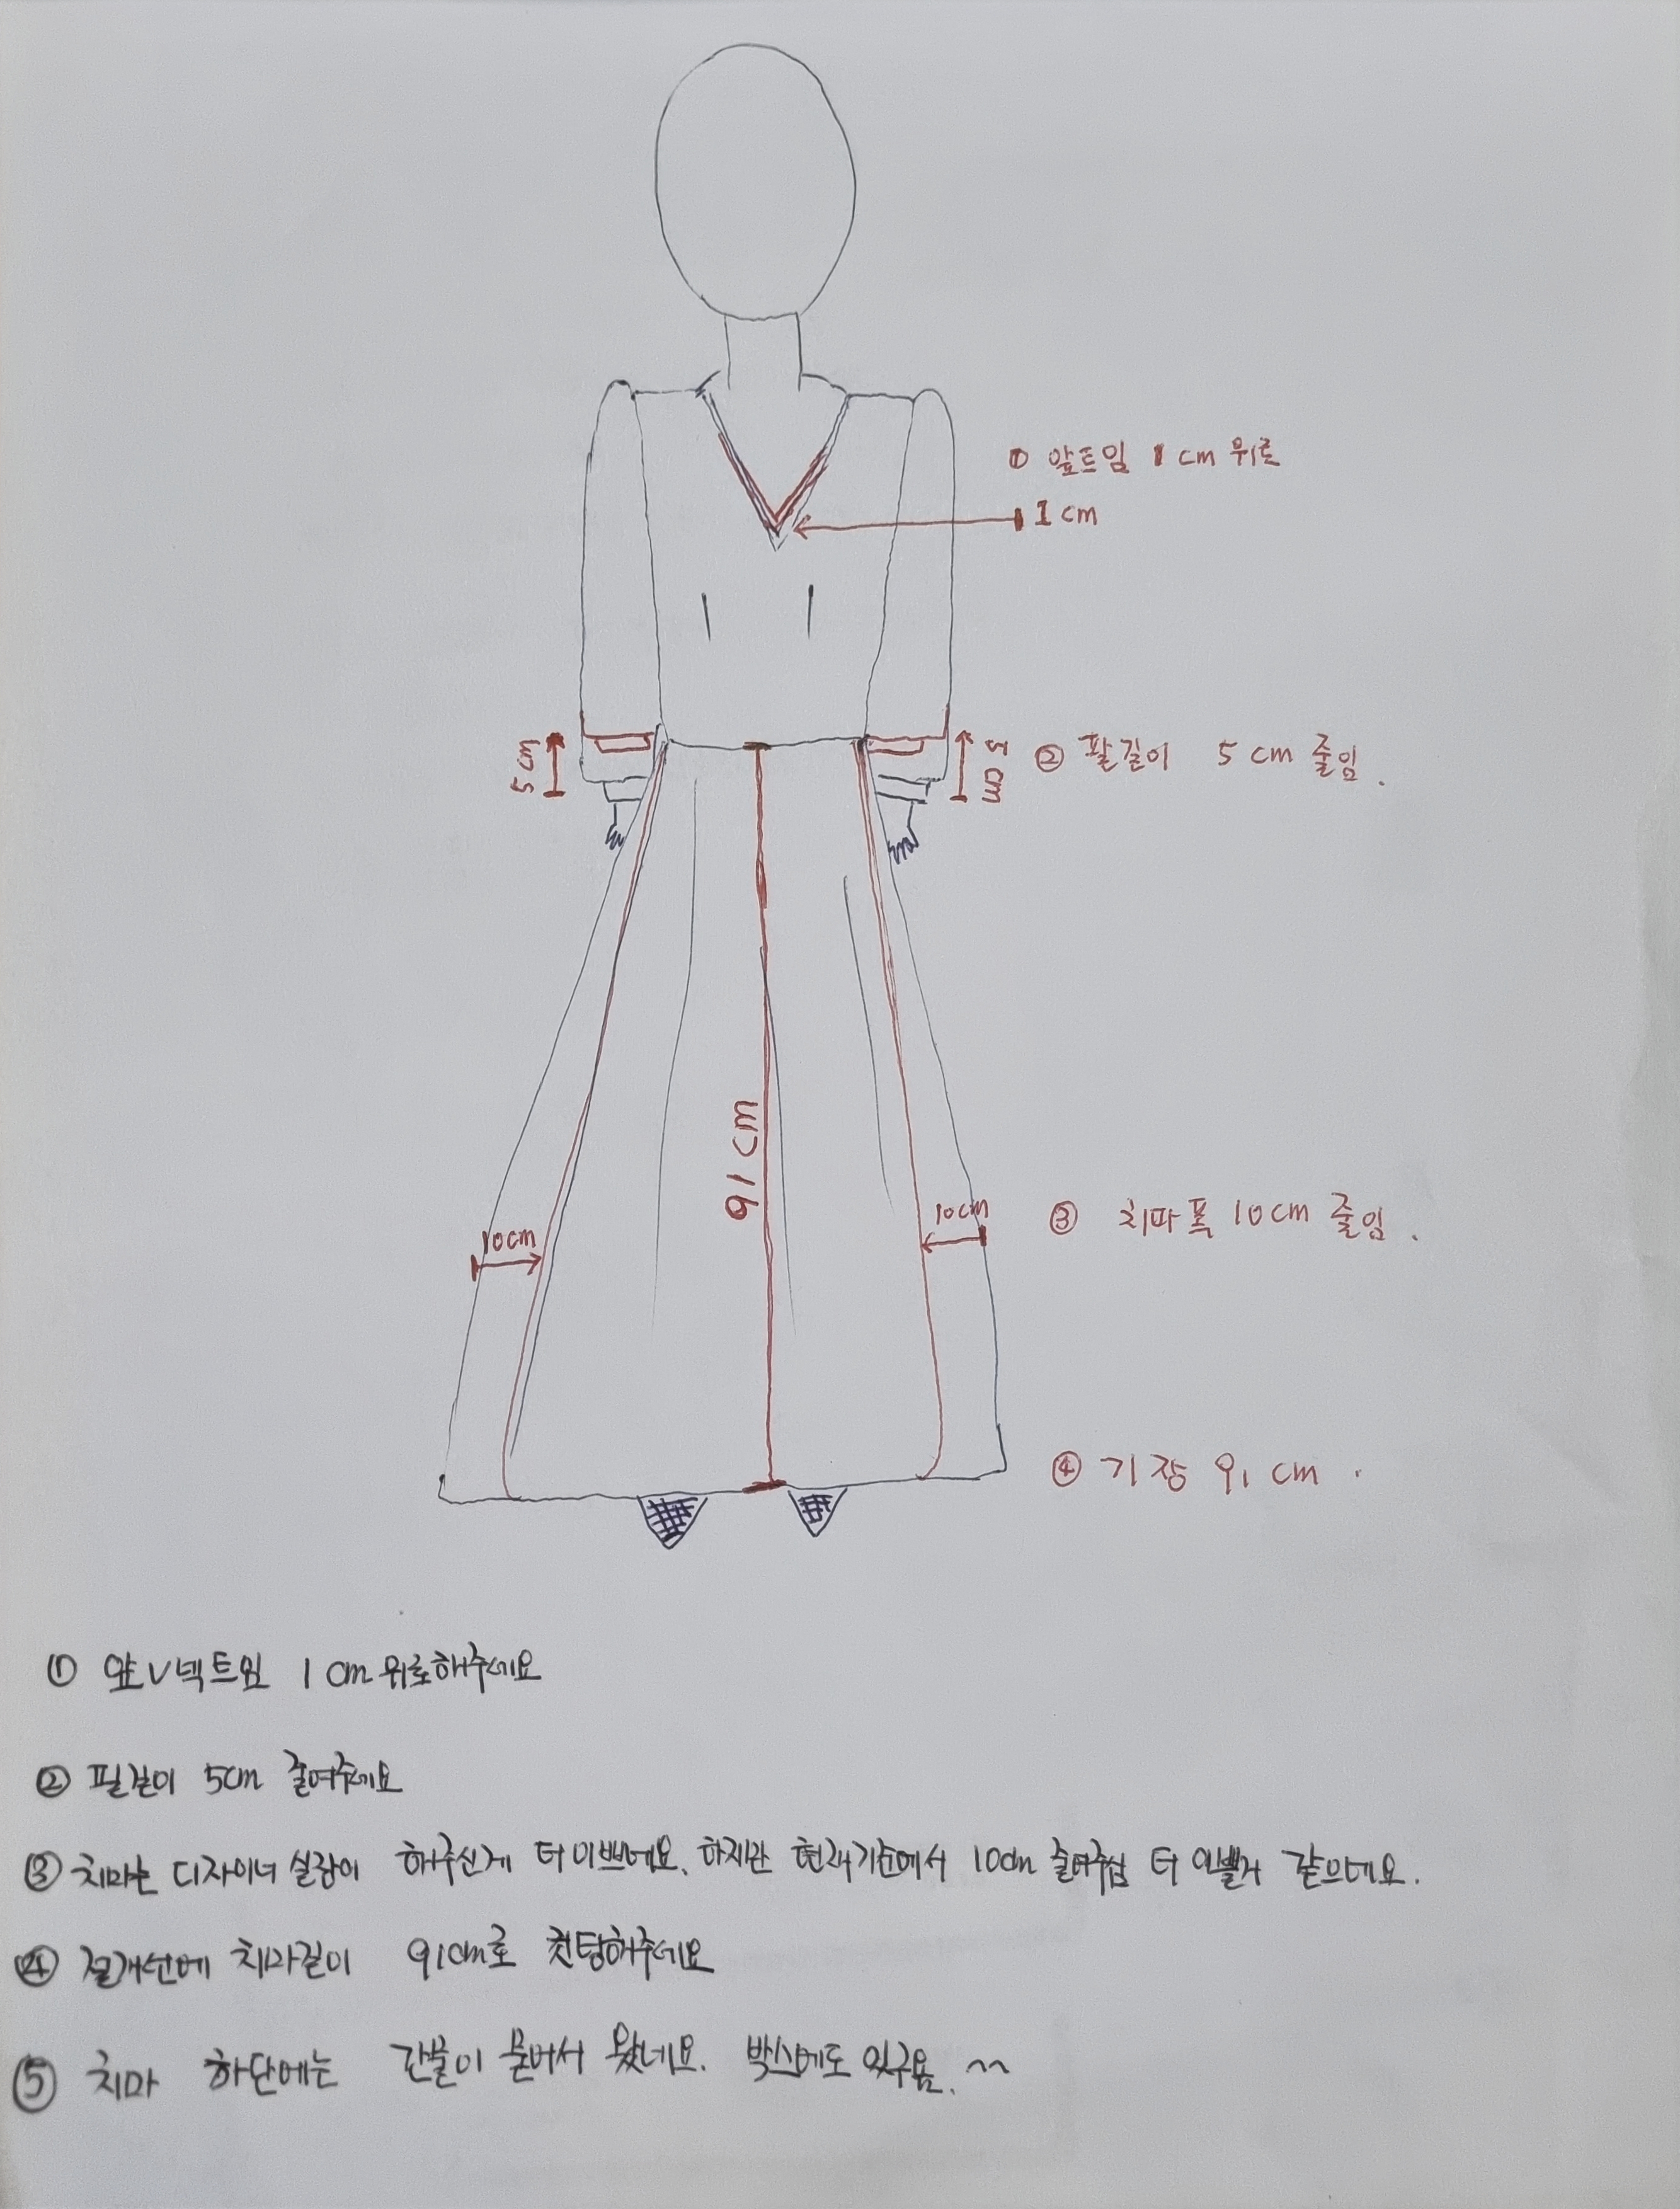 ① 앞트임 1 cm 위로
1 cm
5 cm
5 cm
② 팔길이 5 cm 줄임.
91 cm
10cm
10cm
③ 치마폭 10cm 줄임.
④ 기장 91 cm.
① 앞V넥트임 1cm 위로해주세요
② 팔길이 5cm 줄여주세요
③ 치마는 디자이너 실장이 해주신게 더 이쁘네요. 하지만 현재기준에서 10cm 줄여주심 더 이쁠거 같으네요.
④ 절개선에 치마길이 91cm로 컷팅해주세요
⑤ 치마 하단에는 물어서 왔네요. 박스에도 있구욤.~~